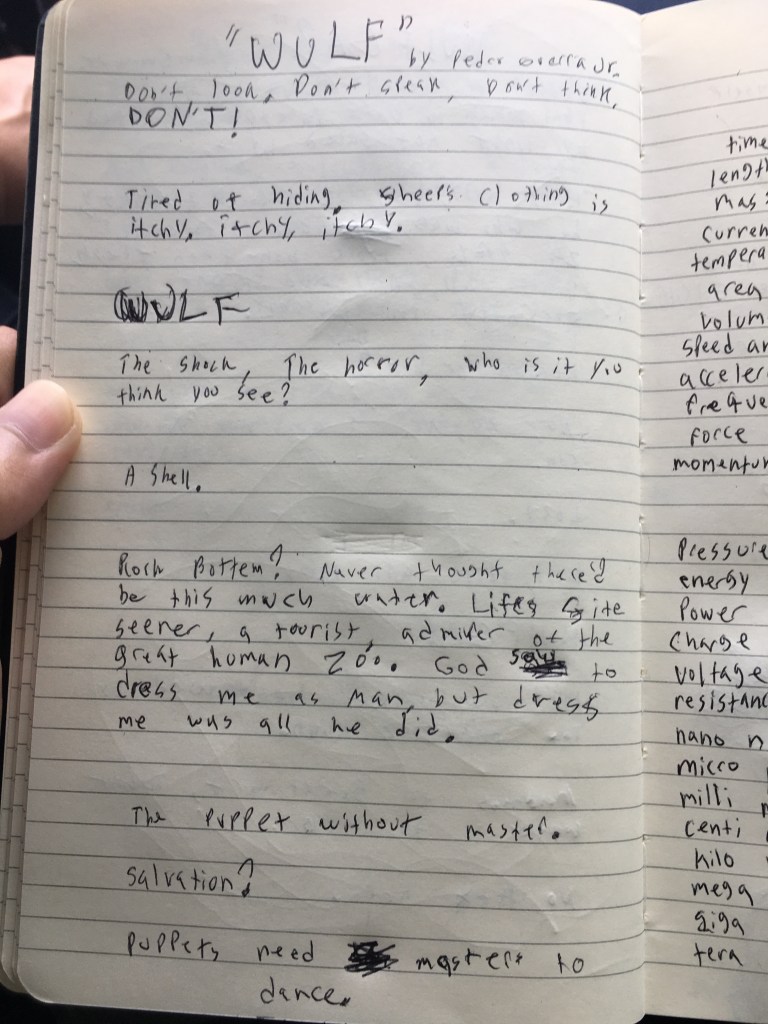 "WULF" by Peder Jr.
Don't look, Don't speak, Don't think,
DON'T!
Tired of hiding. Sheep's clothing is
itchy, itchy, itchy.
WULF
The shock, The horror, who is it you
think you see?
A Shell.
Rock Bottem? Never thought there'd
be this much water. Lifes Site
seener, a tourist, admirer of the
great human zoo. God saw to
dress me as man, but dress
me was all he did.
The puppet without master.
Salvation?
Puppets need masters to
dance.
time
length
mass
curren
tempera
area
volum
speed an
acceler
freque
force
momentum
Pressure
energy
Power
Charge
voltage
resistanc
nano n
micro
milli m
centi
kilo
mega
giga
tera